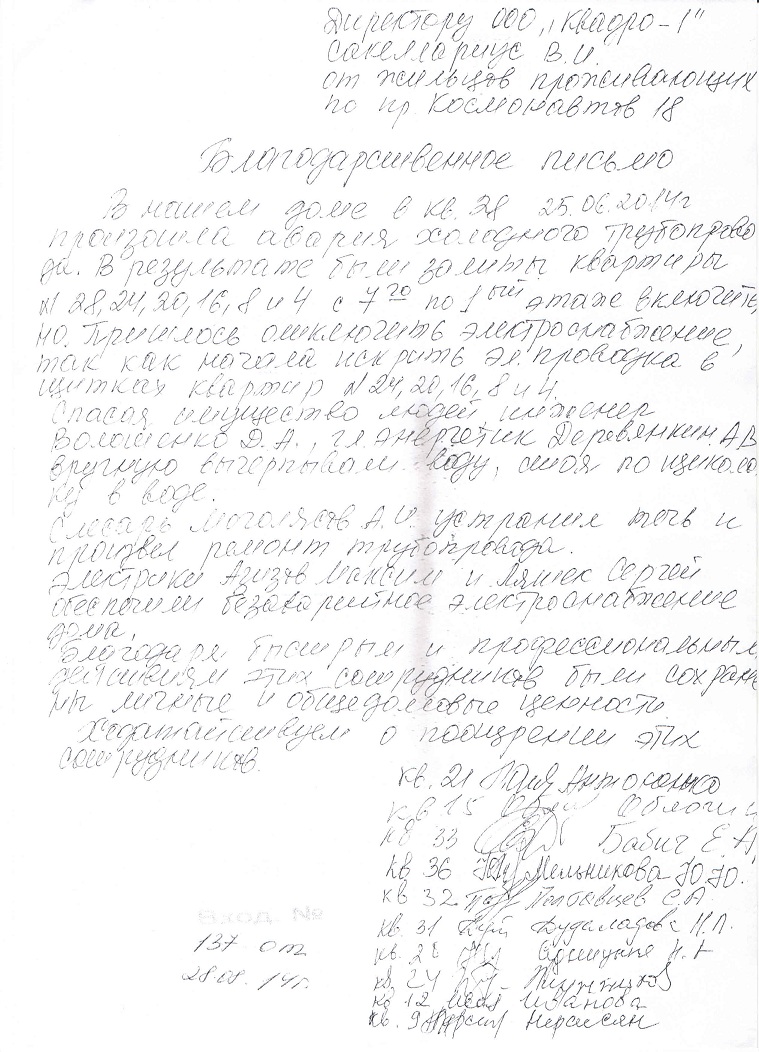 Директору ООО „Квадро-1"
Сакеллариус В.И.
от жильцов проживающих
по пр. Космонавтов 18
Благодарственное письмо
В нашем доме в кв. 28 25.06.2014г
произошла авария холодного трубопрово
да. В результате были залиты квартиры
№ 28, 24, 20, 16, 8 и 4 с 7го по 1ый этаж включитель
но. Пришлось отключить электроснабжение,
так как начала искрить эл. проводка в
щитках квартир № 24, 20, 16, 8 и 4.
Спасая имущество людей инженер
Волошенко Д.А., гл. энергетик Деревянкин А.В
вручную вычерпывали воду, стоя по щиколо
ку в воде.
Слесарь А.И. устранил течь и
произвел ремонт трубопровода.
Электрики Азизов Максим и Ляшек Сергей
обеспечили безаварийное электроснабжение
дома.
Благодаря быстрым и профессиональным
действиям этих сотрудников были сохране
ны личные и общедомовые ценности.
Ходатайствуем о поощрении этих
сотрудников.
кв. 21
кв 15
кв 33 Бабич Е.А
кв 36 Мельникова Ю.Ю.
кв 32 С.А.
кв. 31 Н.П.
кв. 28
кв. 24
кв 12 Иванова
кв. 9 Нерсисян
Вход. №
137 от
28.08.14г.